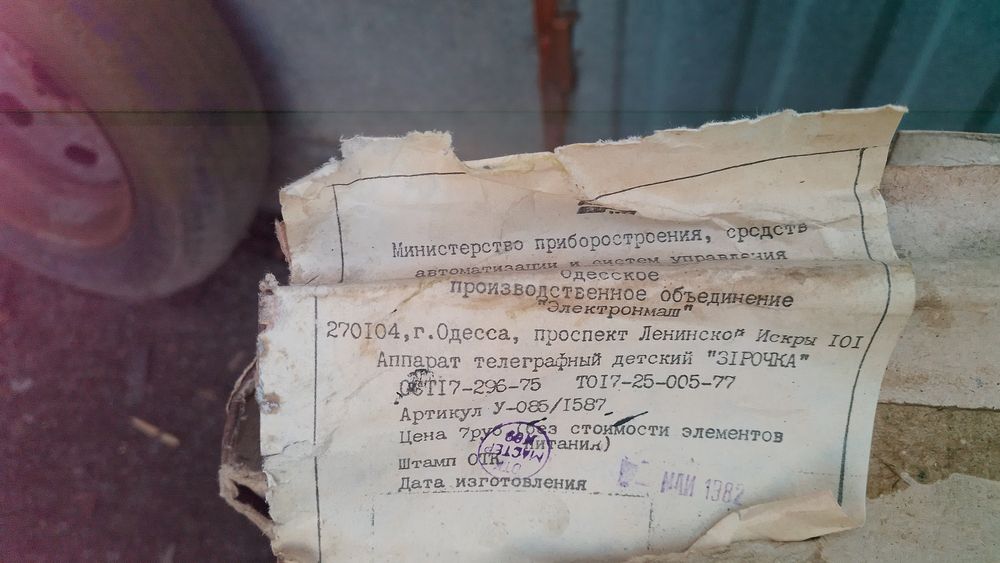 Министерство приборостроения, средств
автоматизации и систем управления
Одесское
производственное объединение
"Электронмаш"
270104, г.Одесса, проспект Ленинской Искры 101
Аппарат телеграфный детский "ЗІРОЧКА"
ОСТ17-296-75 ТО17-25-005-77
Артикул У-085/1587
Цена 7руб (без стоимости элементов
питания)
Штамп ОТК
ОТК
МАСТЕР
Дата изготовления
МАЙ 1982